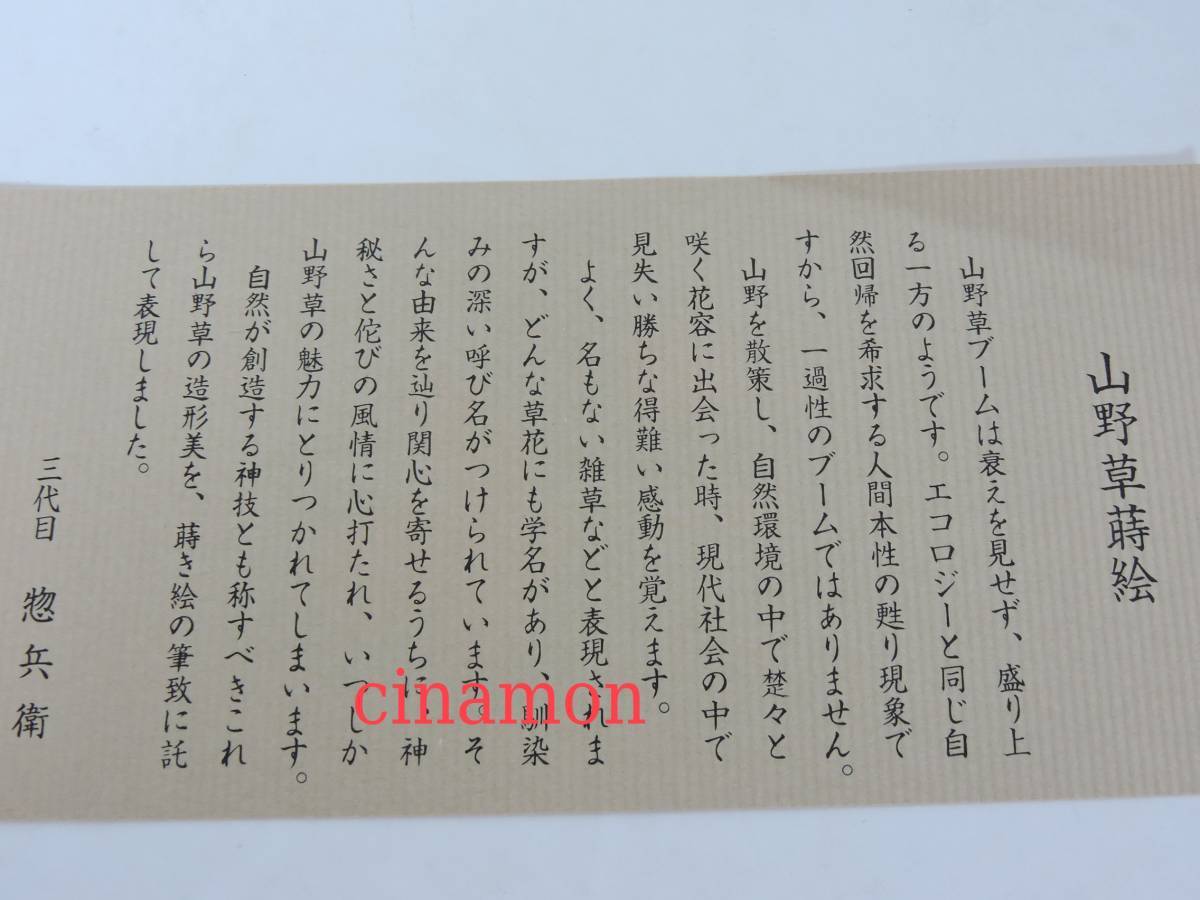 山野草蒔絵
山野草ブームは衰えを見せず、盛り上
る一方のようです。エコロジーと同じ自
然回帰を希求する人間本性の甦り現象で
すから、一過性のブームではありません。
山野を散策し、自然環境の中で楚々と
咲く花容に出会った時、現代社会の中で
見失い勝ちな得難い感動を覚えます。
よく、名もない雑草などと表現されま
すが、どんな草花にも学名があり、馴染
みの深い呼び名がつけられています。そ
んな由来を辿り関心を寄せるうちに、神
秘さと侘びの風情に心打たれ、いつしか
山野草の魅力にとりつかれてしまいます。
自然が創造する神技とも称すべきこれ
ら山野草の造形美を、蒔き絵の筆致に託
して表現しました。
三代目 惣兵衛
cinamon